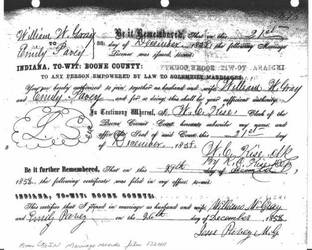 William W. Gray
TO
Emily Pavey
Be it Remembered, That on this 21st
day of December 1858 the following Marriage
License was issued
INDIANA, TO-WIT: BOONE COUNTY:
TO ANY PERSON EMPOWERED BY LAW TO SOLEMNIZE MARRIAGES
You are hereby authorized to join together as husband and wife William W. Gray
and Emily Pavey and for so doing this shall be your sufficient authority.
In Testimony Whereof, I, W. C. Kise, Clerk of the
Boone Circuit Court hereunto subscribe my name and
affix the Seal of said Court this 21st day of
December 1858.
W. C. Kise Clk
Be it further Remembered, That on this 29th day of
1858 the following certificate was filed in my office to-wit:
INDIANA, TO-WIT: BOONE COUNTY:
This certifies that I joined in marriage as husband and wife William W. Gray
and Emily Pavey on the 26th of December 1858
Boone County Marriage records film